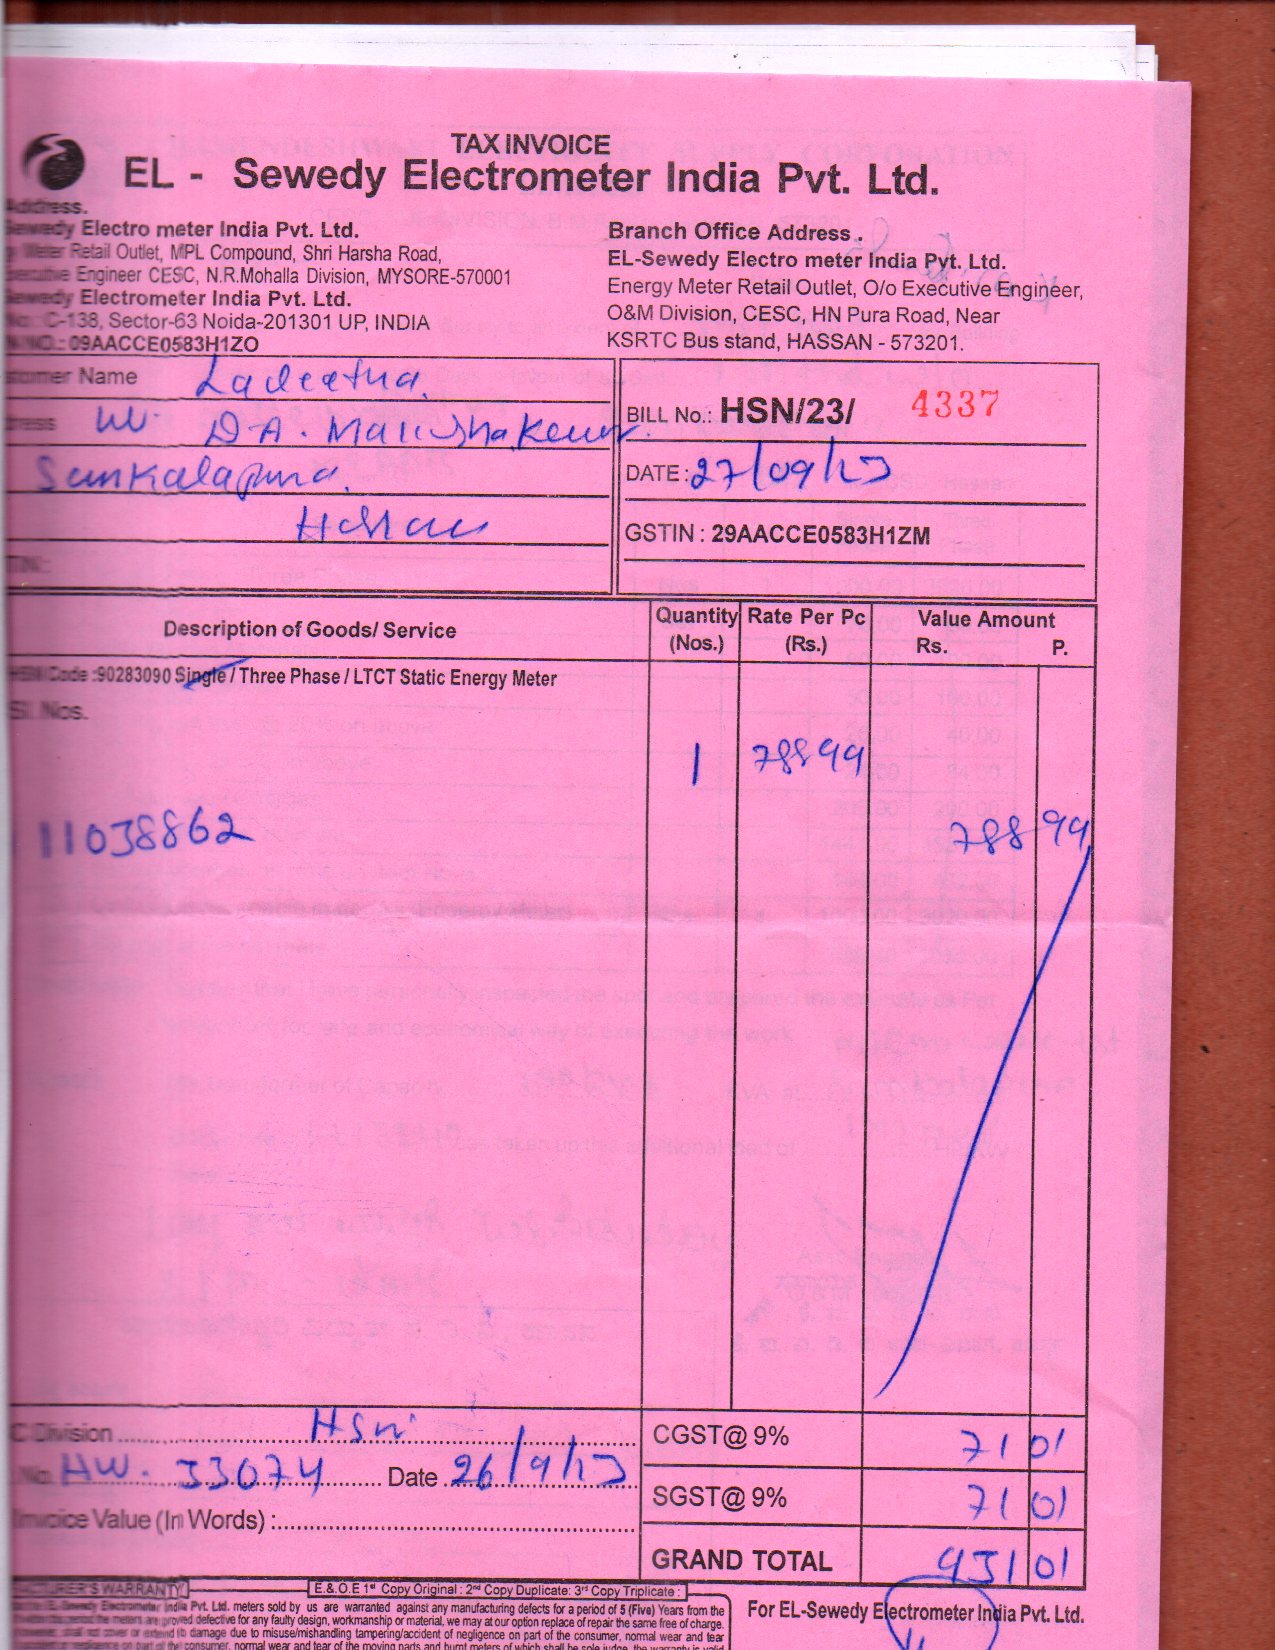 TAX INVOICE
EL - Sewedy Electrometer India Pvt. Ltd.
Address.
Sewedy Electro meter India Pvt. Ltd.
Meter Retail Outlet, MPL Compound, Shri Harsha Road,
Executive Engineer CESC, N.R.Mohalla Division, MYSORE-570001
Sewedy Electrometer India Pvt. Ltd.
No.: C-138, Sector-63 Noida-201301 UP, INDIA
09AACCE0583H1ZO
Branch Office Address .
EL-Sewedy Electro meter India Pvt. Ltd.
Energy Meter Retail Outlet, O/o Executive Engineer,
O&M Division, CESC, HN Pura Road, Near
KSRTC Bus stand, HASSAN - 573201.
Customer Name
D.A.
Sunkalapura.
Hassan
BILL No.: HSN/23/ 4337
DATE : 27/09/23
GSTIN : 29AACCE0583H1ZM
Description of Goods/ Service Quantity (Nos.) Rate Per Pc (Rs.) Value Amount Rs. P.
HSN Code :90283090 Single / Three Phase / LTCT Static Energy Meter
Sl. Nos.
1 78899
11038862 788 99
Division Hsn CGST@ 9% 71 01
No. HW. 33074 Date 26/9/23 SGST@ 9% 71 01
Invoice Value (In Words) : GRAND TOTAL 931 01
E.& O.E 1st Copy Original : 2nd Copy Duplicate: 3rd Copy Triplicate :
MANUFACTURER'S WARRANTY
India Pvt. Ltd. meters sold by us are warranted against any manufacturing defects for a period of 5 (Five) Years from the
proved defective for any faulty design, workmanship or material, we may at our option replace of repair the same free of charge.
damage due to misuse/mishandling tampering/accident of negligence on part of the consumer, normal wear and tear
consumer, normal wear and tear of the moving parts and burnt meters of which shall be sole judge, the warranty is valid
For EL-Sewedy Electrometer India Pvt. Ltd.